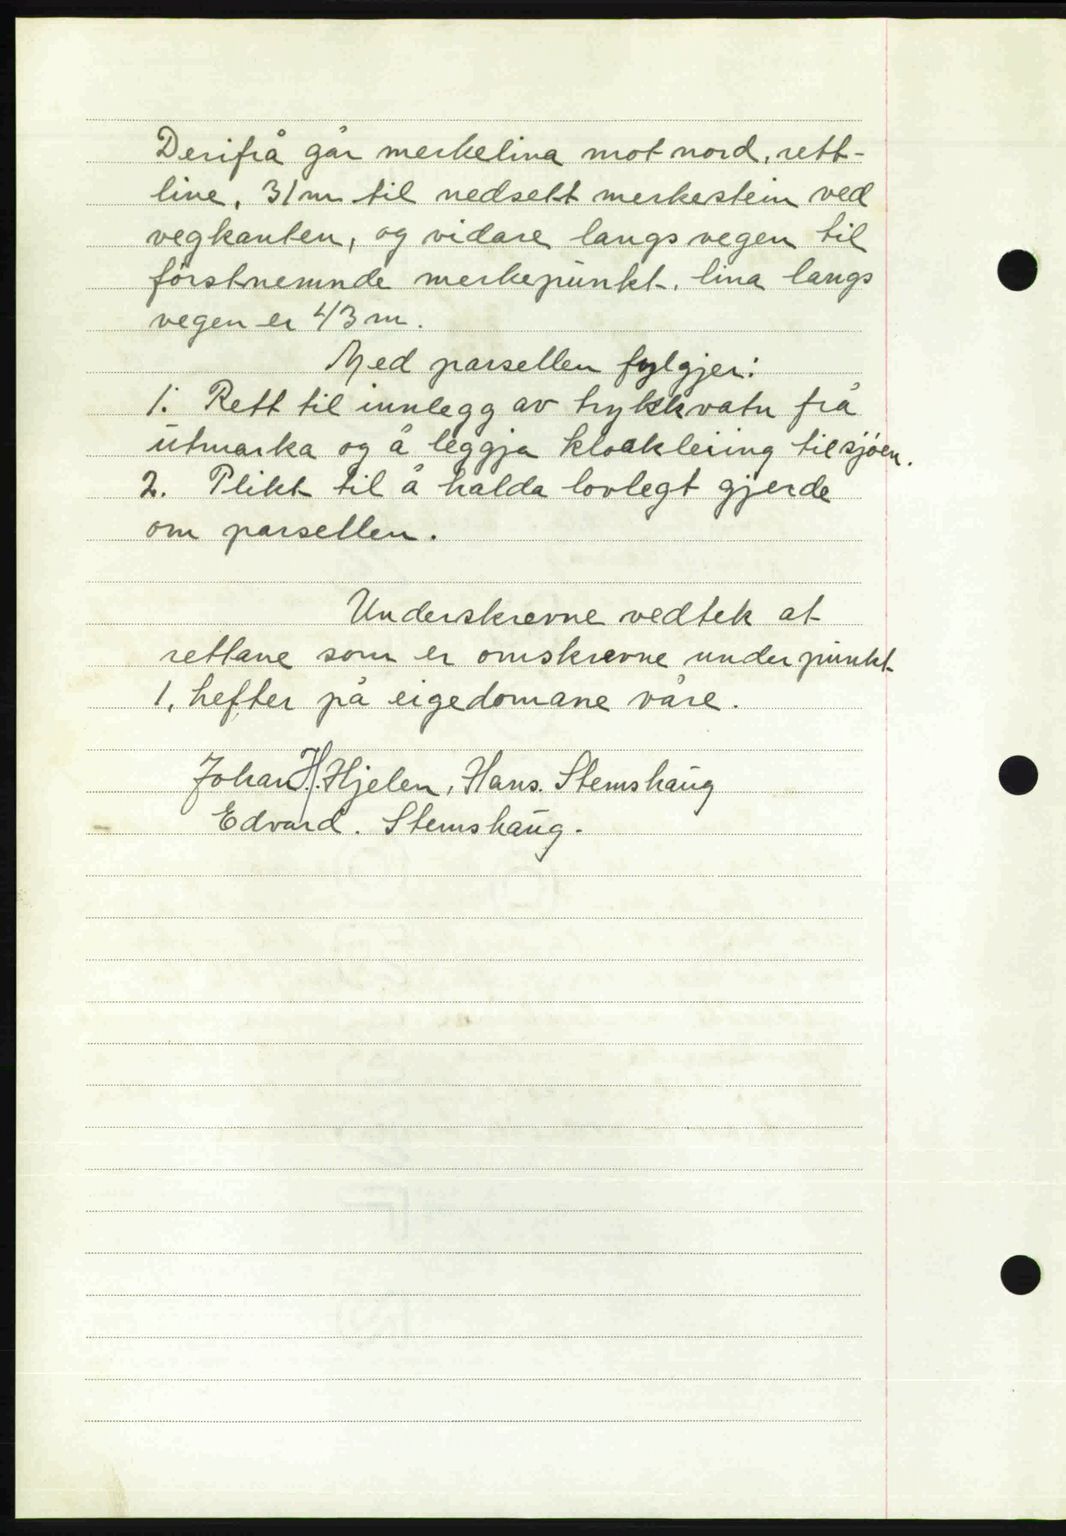 Derifrå går merkelina mot nord, rett-
line, 31 m til nedsett merkestein ved
vegkanten, og vidare langs vegen til
fôrstnemnde merkepunkt. lina langs
vegen er 43 m.
Med parsellen fylgjer:
1. Rett til innlegg av trykkvatn frå
utmarka og å leggja kloakleiing til sjôen.
2. Plikt til å halda lovlegt gjerde
om parsellen.
Underskrevne vedtek at
rettane som er omskrevne under punkt
1, hefter på eigedomane våre.
Johan H. Hjelen, Hans. Stemshaug
Edvard. Stemshaug.